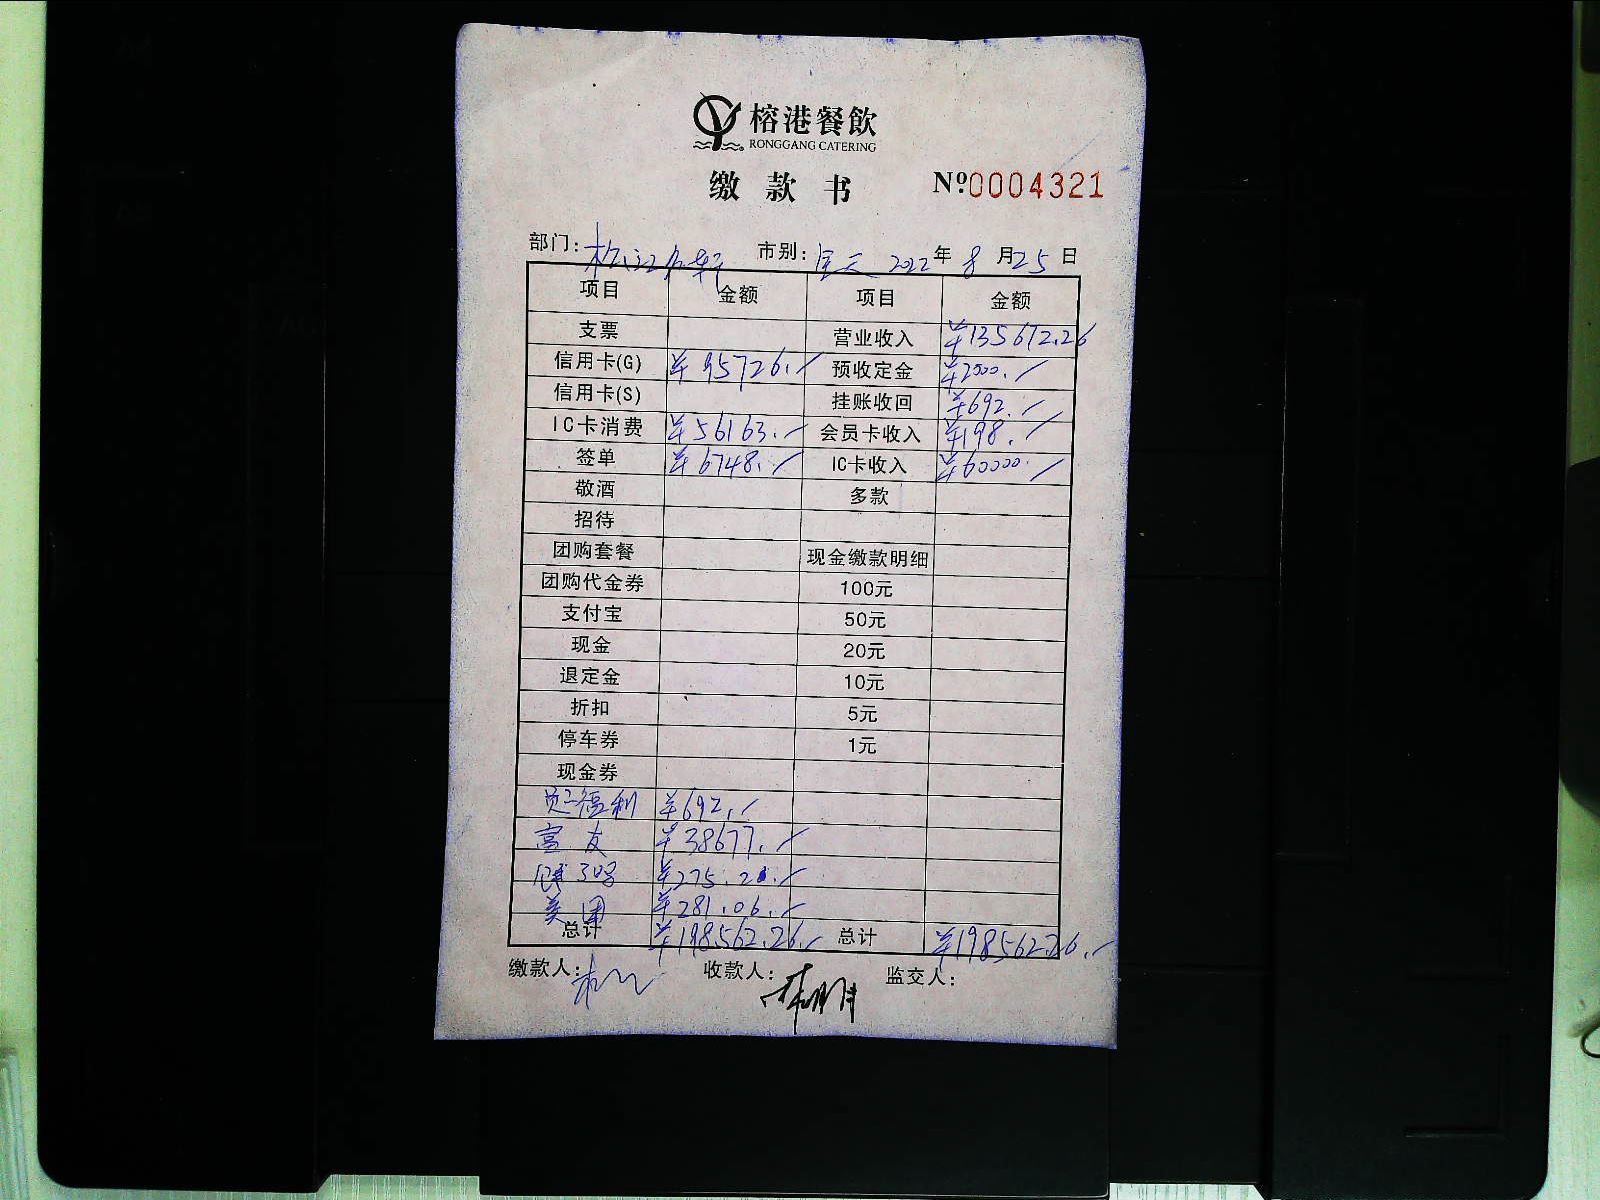 榕港餐飲
RONGGANG CATERING
缴款书 Nº0004321
部门: 市别: 全天 2022年8月25日
项目 金额 项目 金额
支票 营业收入 ¥135672.26
信用卡(G) ¥95726.- 预收定金 ¥2000.-
信用卡(S) 挂账收回 ¥692.-
IC卡消费 ¥56163.- 会员卡收入 ¥198.-
签单 ¥6748.- IC卡收入 ¥60000.-
敬酒 多款
招待
团购套餐 现金缴款明细
团购代金券 100元
支付宝 50元
现金 20元
退定金 10元
折扣 5元
停车券 1元
现金券
员工福利 ¥692.-
富友 ¥38677.-
30号 ¥275.20.-
美团 ¥281.06.-
总计 ¥198562.26.- 总计 ¥198562.26.-
缴款人: 收款人: 监交人: